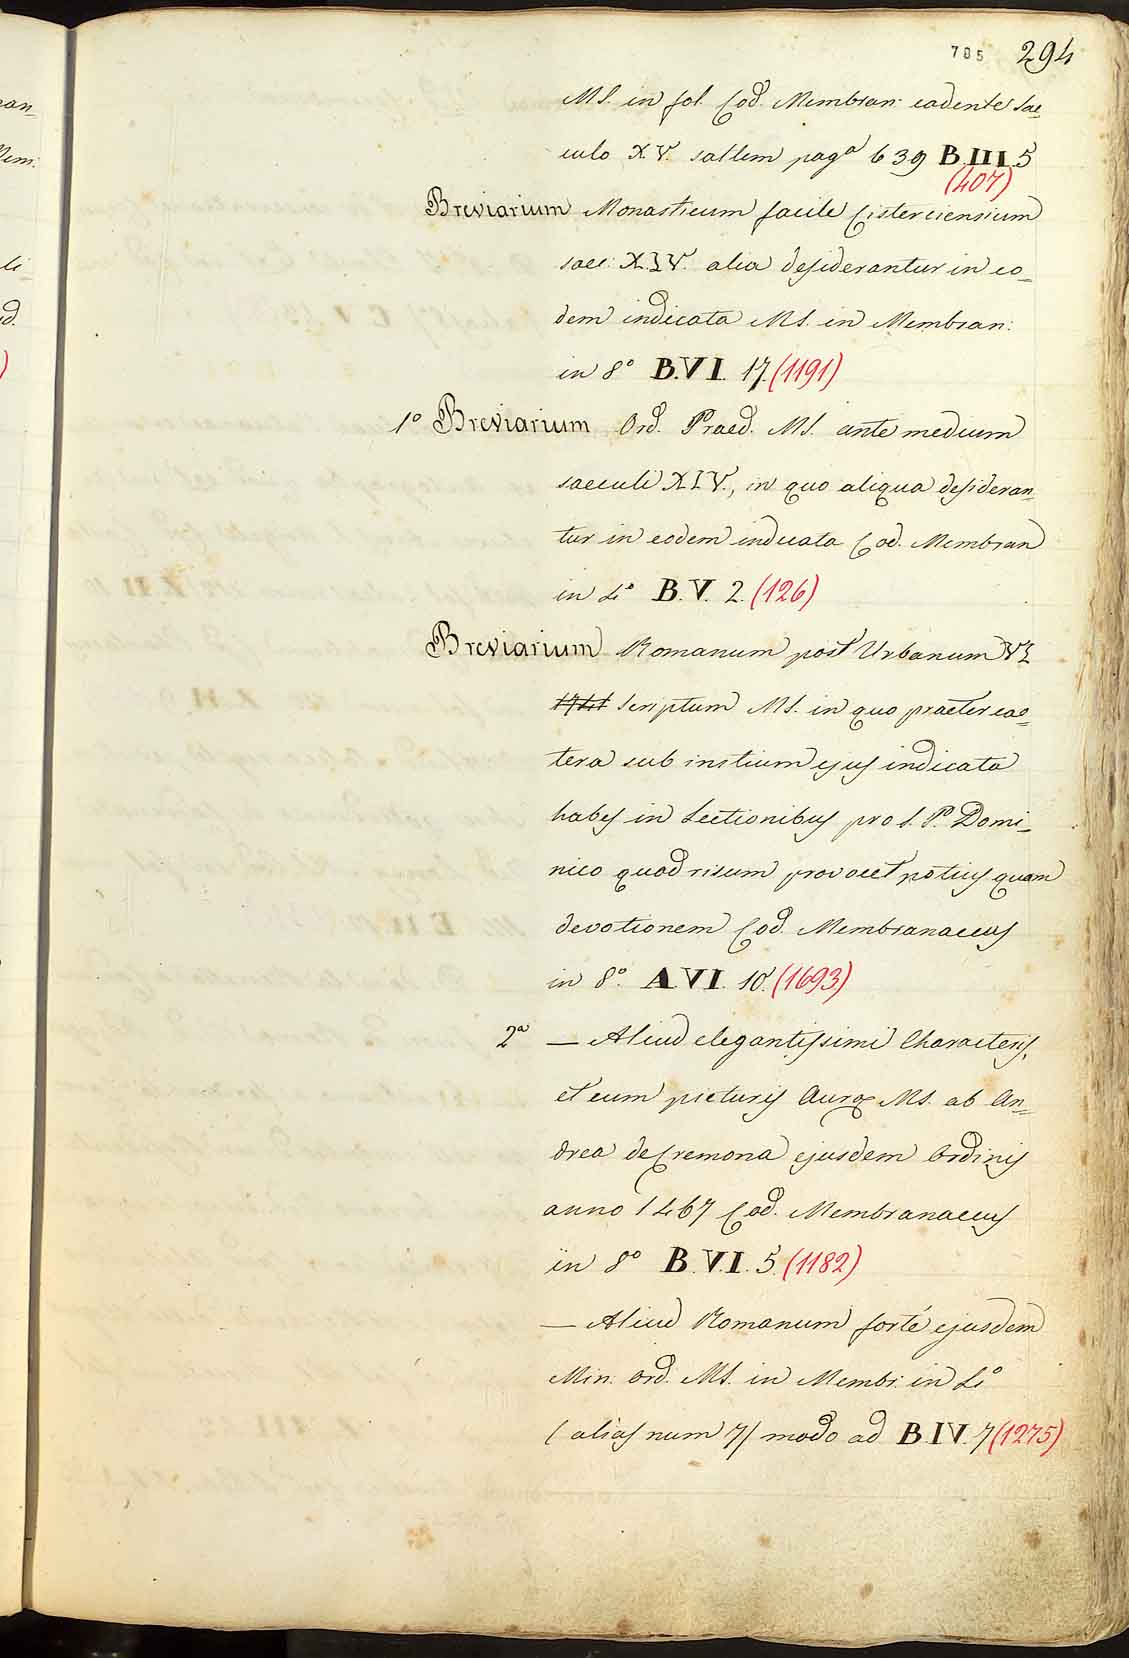 705 294
MS. in fol. Cod. Membran: cadente sae=
culo XV. saltem pagª 639 B.III.5
(407)
Breviarium Monasticum facile Cisterciensium
saec: XIV. alia desiderantur in eo=
dem indicata MS. in Membran:
in 8º B.VI. 17. (1191)
1º Breviarium Ord. Praed. MS. ante medium
saeculi XIV., in quo aliqua desideran=
tur in eodem indicata Cod. Membran
in 4º B.V. 2. (126)
Breviarium Romanum post Urbanum VI
scriptum MS. in quo praeter cae=
tera sub initium ejus indicata
habes in Lectionibus pro S. P. Domi=
nico quod risum provocet potius quam
devotionem Cod. Membranaceus
in 8º. A VI. 10. (1693)
2ª — Aliud elegantissimi Characteris,
et cum picturis MS. ab An=
drea de Cremona ejusdem Ordinis
anno 1467 Cod. Membranaceus
in 8º B.VI. 5. (1182)
— Aliud Romanum forté ejusdem
Min: Ord. MS. in Membr: in 4º
(alias num 7) modo ad B.IV. 7 (1275)
an=
Mem:
li=
d.
)